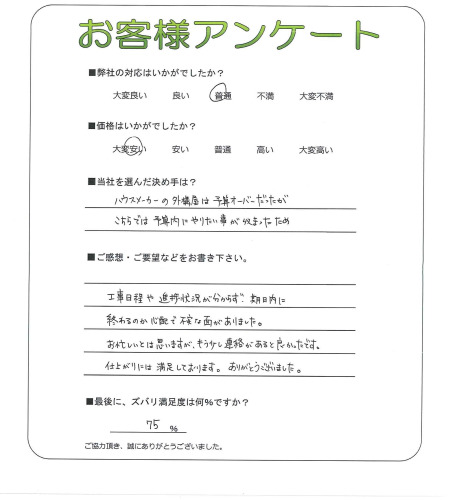 お客様アンケート
■弊社の対応はいかがでしたか？
大変良い 良い 普通 不満 大変不満
■価格はいかがでしたか？
大変安い 安い 普通 高い 大変高い
■当社を選んだ決め手は？
ハウスメーカーの外構屋は予算オーバーだったが
こちらでは予算内にやりたい事が収まったため
■ご感想・ご要望などをお書き下さい。
工事日程や進捗状況が分からず、期日内に
終わるのか心配で不安な面がありました。
お忙しいとは思いますが、もう少し連絡があると良かったです。
仕上がりには満足しております。ありがとうございました。
■最後に、ズバリ満足度は何％ですか？
75 %
ご協力頂き、誠にありがとうございました。